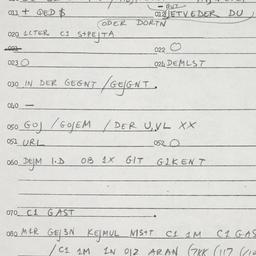 011 + QED $ 012 JETVEDER DU
(ODER DORTN
020 LCTER C1 S+PEJTA
022 O
023 O 024 DEMLST
030 IN DER GEGNT / GEJGNT.
040 —
050 GOJ / GOJEM / DER U,VL XX
051 URL 052 O
060 DEJM I.D OB 1X GIT GIKENT
070 C1 GAST
080 MER GEJSN KEJMUL NIST C1 1M C1 GAS
/ C1 1M IN OIZ ARAN